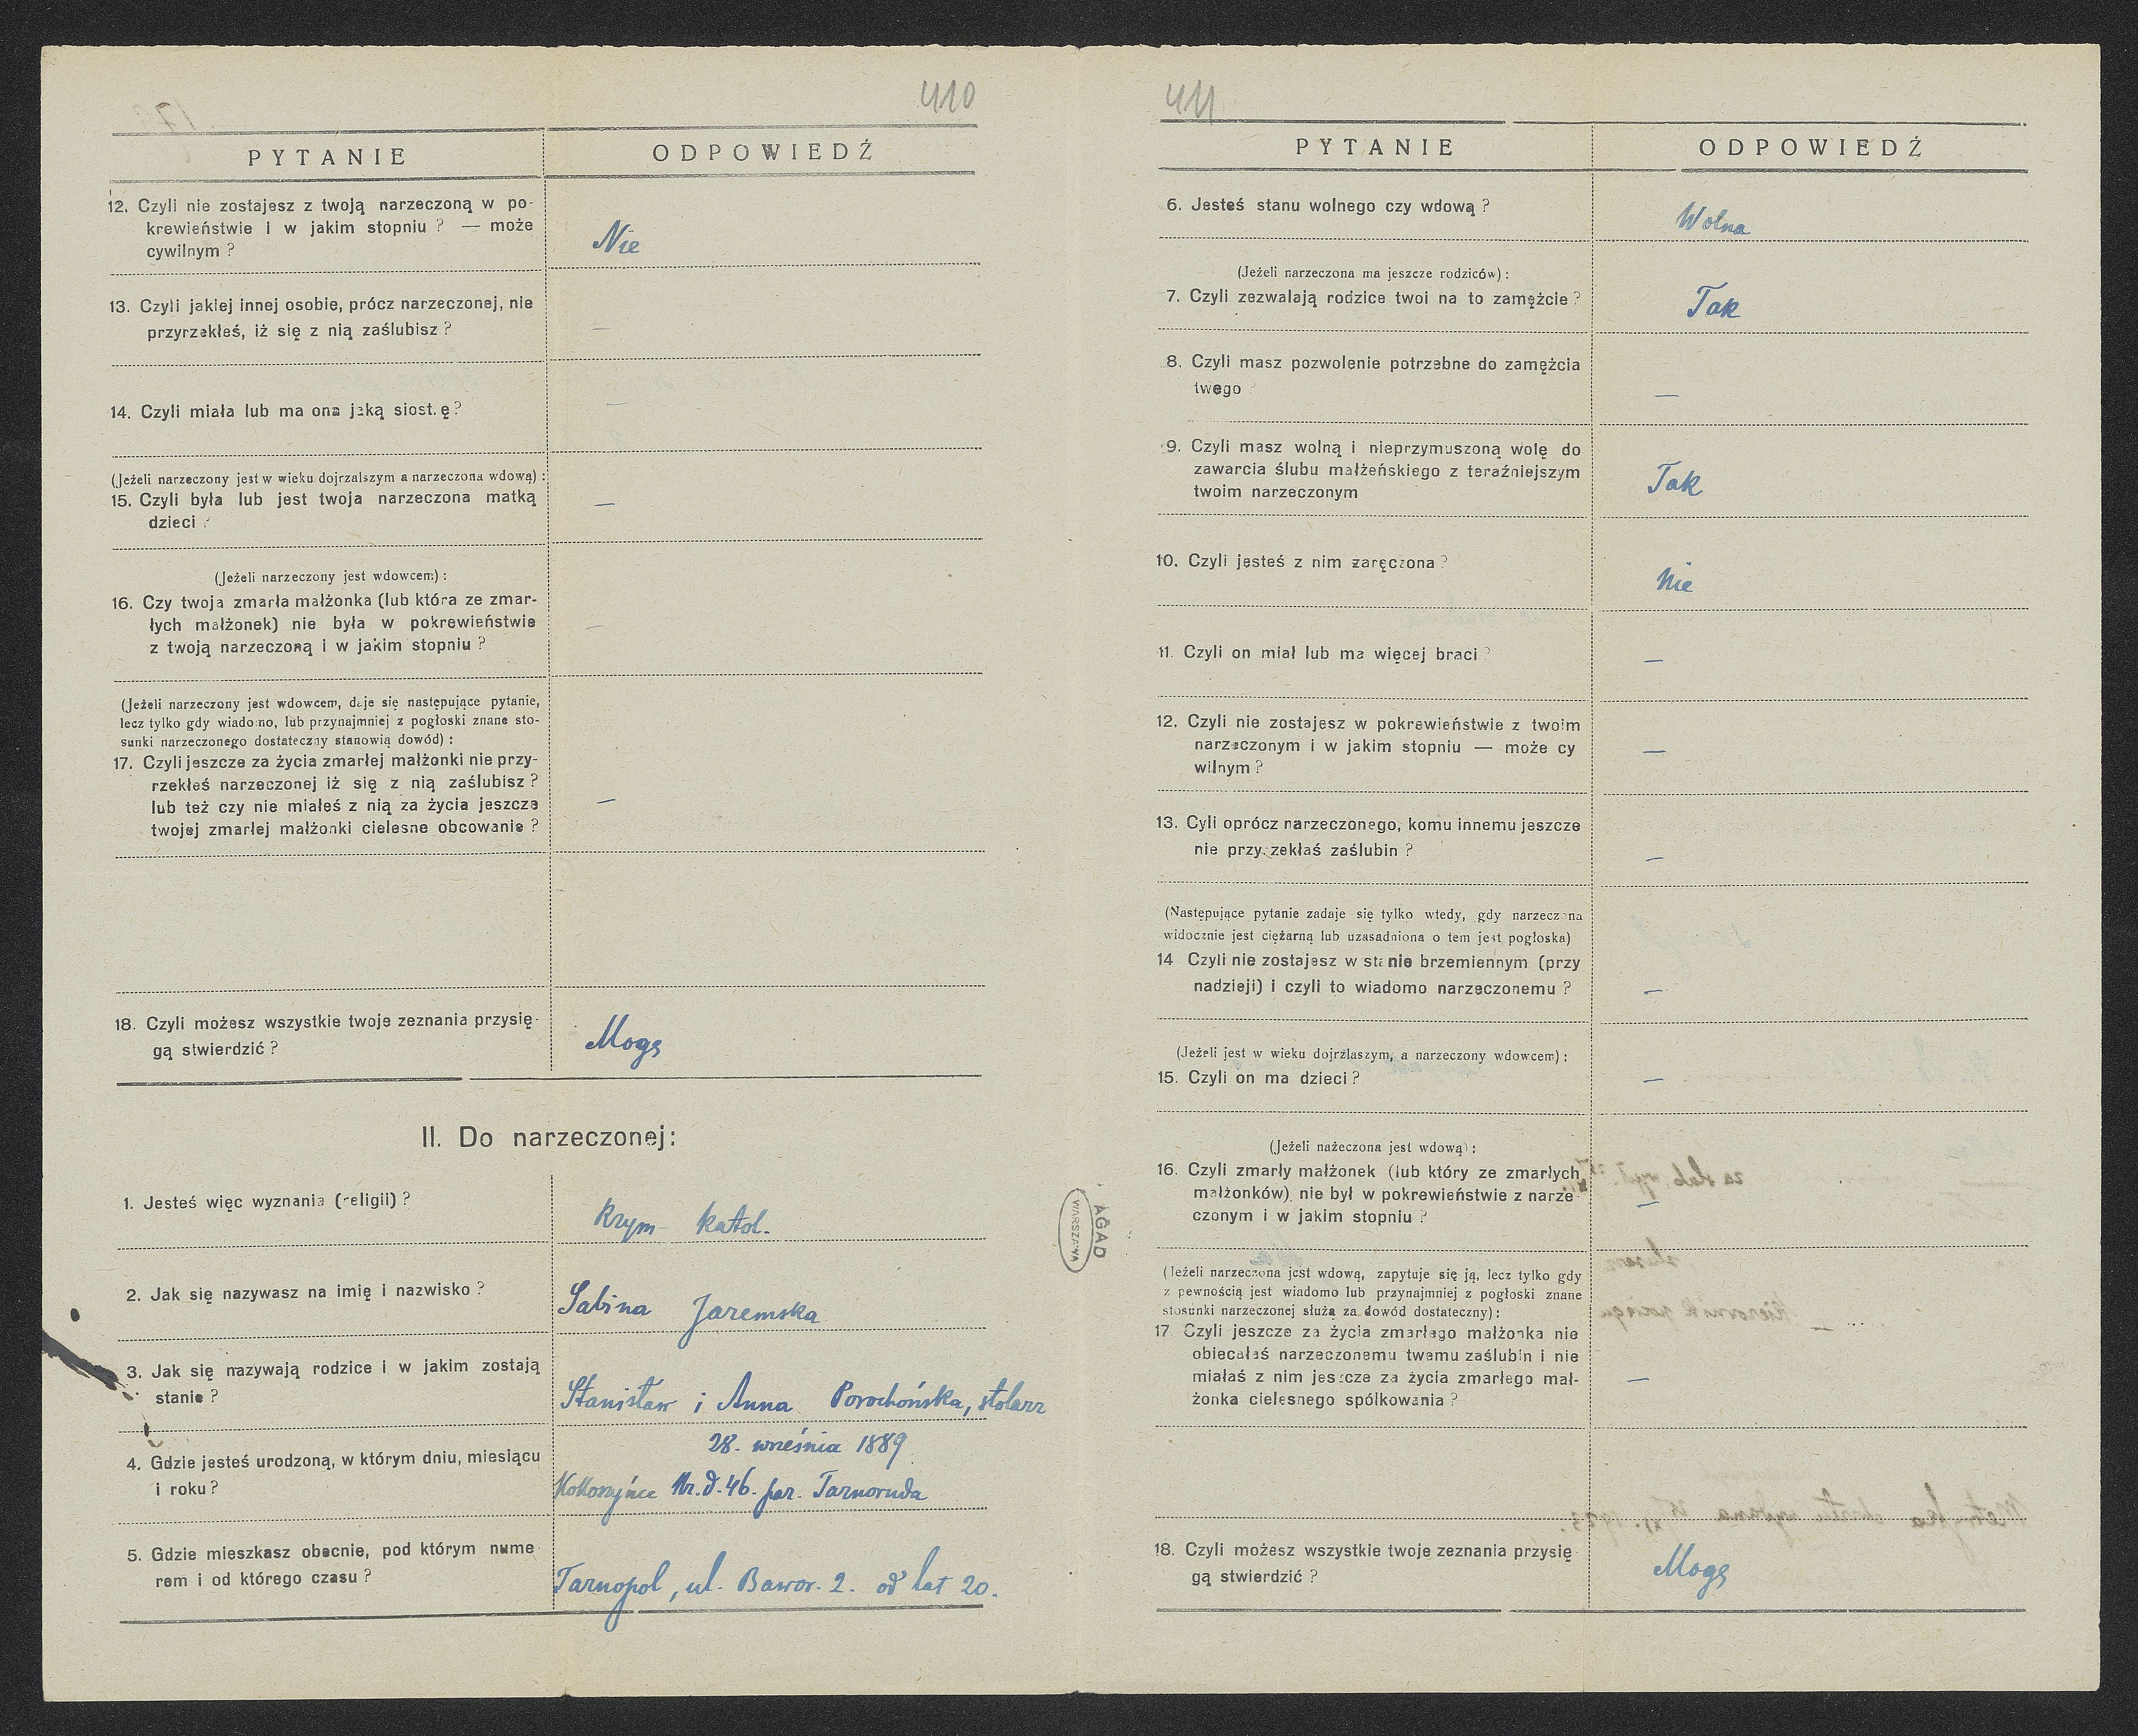 410
PYTANIE
ODPOWIEDŹ
12. Czyli nie zostajesz z twoją narzeczoną w po-
krewieństwie i w jakim stopniu ? — może
cywilnym ?
Nie
13. Czyli jakiej innej osobie, prócz narzeczonej, nie
przyrzekłeś, iż się z nią zaślubisz ?
—
14. Czyli miała lub ma ona jaką siost.ę?
—
(Jeżeli narzeczony jest w wieku dojrzalszym a narzeczona wdową) :
15. Czyli była lub jest twoja narzeczona matką
dzieci ?
—
(Jeżeli narzeczony jest wdowcem) :
16. Czy twoja zmarła małżonka (lub która ze zmar-
łych małżonek) nie była w pokrewieństwie
z twoją narzeczoną i w jakim stopniu ?
—
(Jeżeli narzeczony jest wdowcem, daje się następujące pytanie,
lecz tylko gdy wiadomo, lub przynajmniej z pogłoski znane sto-
sunki narzeczonego dostateczny stanowią dowód) :
17. Czyli jeszcze za życia zmarłej małżonki nie przy-
rzekłeś narzeczonej iż się z nią zaślubisz ?
lub też czy nie miałeś z nią za życia jeszcze
twojej zmarłej małżonki cielesne obcowanie ?
—
18. Czyli możesz wszystkie twoje zeznania przysię-
gą stwierdzić ?
Mogę
II. Do narzeczonej:
1. Jesteś więc wyznania (religii) ?
Rzym- katol.
2. Jak się nazywasz na imię i nazwisko ?
Sabina Jaremska
3. Jak się nazywają rodzice i w jakim zostają
stanie ?
Stanisław i Anna Porochońska, stolarz
4. Gdzie jesteś urodzoną, w którym dniu, miesiącu
i roku?
28. września 1889
Kokoszyńce Nr. d. 46. par. Tarnoruda
5. Gdzie mieszkasz obecnie, pod którym nume-
rem i od którego czasu ?
Tarnopol, ul. Bawor. 2. od lat 20.
AGAD
WARSZAWA
411
PYTANIE
ODPOWIEDŹ
6. Jesteś stanu wolnego czy wdową ?
Wolna
(Jeżeli narzeczona ma jeszcze rodziców) :
7. Czyli zezwalają rodzice twoi na to zamężcie ?
Tak
8. Czyli masz pozwolenie potrzebne do zamężcia
twego ?
—
9. Czyli masz wolną i nieprzymuszoną wolę do
zawarcia ślubu małżeńskiego z teraźniejszym
twoim narzeczonym
Tak
10. Czyli jesteś z nim zaręczona ?
Nie
11. Czyli on miał lub ma więcej braci ?
—
12. Czyli nie zostajesz w pokrewieństwie z twoim
narzeczonym i w jakim stopniu — może cy
wilnym ?
—
13. Cyli oprócz narzeczonego, komu innemu jeszcze
nie przy.zekłaś zaślubin ?
—
(Następujące pytanie zadaje się tylko wtedy, gdy narzeczona
widocznie jest ciężarną lub uzasadniona o tem jest pogłoska)
14 Czyli nie zostajesz w stanie brzemiennym (przy
nadzieji) i czyli to wiadomo narzeczonemu ?
—
(Jeżeli jest w wieku dojrzlaszym, a narzeczony wdowcem) :
15. Czyli on ma dzieci ?
—
(Jeżeli nażeczona jest wdową) :
16. Czyli zmarły małżonek (lub który ze zmarłych
małżonków) nie był w pokrewieństwie z narze-
czonym i w jakim stopniu ?
—
(Jeżeli narzeczona jest wdową, zapytuje się ją, lecz tylko gdy
z pewnością jest wiadomo lub przynajmniej z pogłoski znane
stosunki narzeczonej służą za dowód dostateczny) :
17 Czyli jeszcze za życia zmarłego małżonka nie
obiecałaś narzeczonemu twemu zaślubin i nie
miałaś z nim jeszcze za życia zmarłego mał-
żonka cielesnego spólkowania ?
—
18. Czyli możesz wszystkie twoje zeznania przysię-
gą stwierdzić ?
Mogę